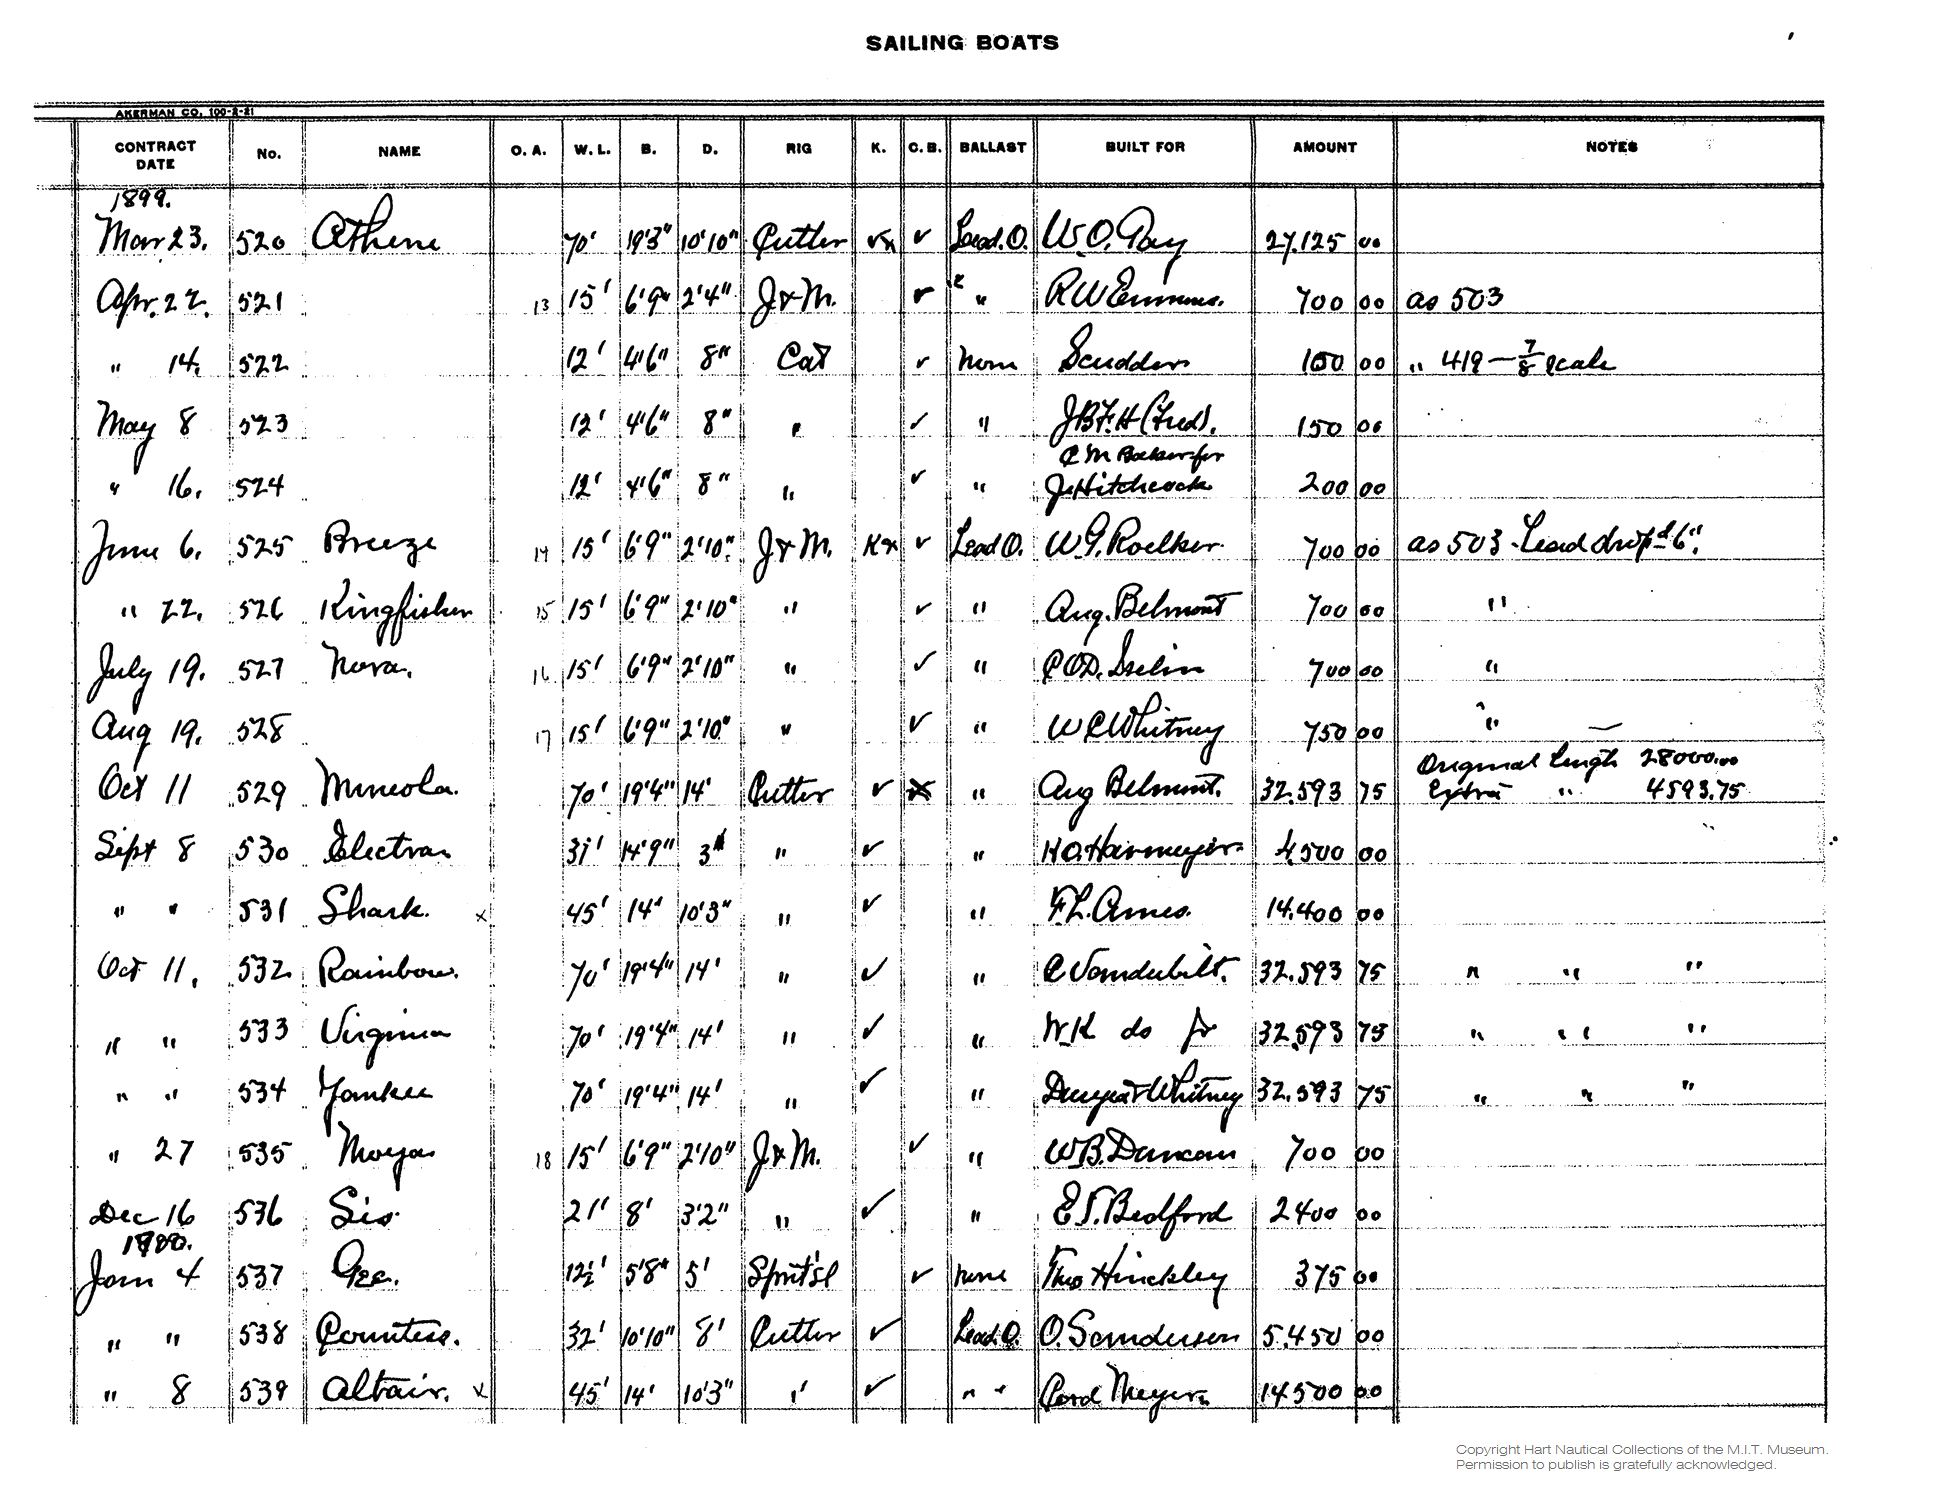 SAILING BOATS
AKERMAN CO. 100-2-21
CONTRACT DATE No. NAME O. A. W. L. B. D. RIG K. C. B. BALLAST BUILT FOR AMOUNT NOTES
1899.
Mar 23. 520 Athene 70' 19'3" 10'10" Cutter ✓x ✓ Lead.O. W.O. Gay 27.125 00
Apr. 22. 521 13 15' 6'9" 2'4" J+M. ✓ " R W Emmons. 700 00 as 503
" 14. 522 12' 4'6" 8" Cat ✓ None Scudder 150 00 " 419 - 7/8 scale
May 8 523 12' 4'6" 8" " ✓ " J.B.F.H (Fred). 150 00
C M Baker for
" 16. 524 12' 4'6" 8" " ✓ " J. Hitchcock 200 00
June 6. 525 Breeze 14 15' 6'9" 2'10" J+M. Kx ✓ Lead O. W.G. Roelker 700 00 as 503 - Lead drop'd 6".
" 22. 526 Kingfisher 15 15' 6'9" 2'10" " ✓ " Aug. Belmont 700 00 "
July 19. 527 Nora. 16 15' 6'9" 2'10" " ✓ " C.O.D. Iselin 700 00 "
Aug 19. 528 17 15' 6'9" 2'10" " ✓ " W C Whitney 750 00 "
Original length 28000.00
Oct 11 529 Mineola. 70' 19'4" 14' Cutter ✓ x " Aug Belmont. 32.593 75 Extra " 4593.75
Sept 8 530 Electra 31' 14'9" 3' " ✓ " H.O. Havmeyer. 4.500 00
" " 531 Shark. x 45' 14' 10'3" " ✓ " F.L. Ames. 14.400 00
Oct 11. 532 Rainbow. 70' 19'4" 14' " ✓ " C Vanderbilt. 32.593 75 " " "
" " 533 Virginia 70' 19'4" 14' " ✓ " W.K do Jr 32.593 75 " " "
" " 534 Yankee 70' 19'4" 14' " ✓ " Duryea + Whitney 32.593 75 " " "
" 27 535 18 15' 6'9" 2'10" J+M. ✓ " W.B. Duncan 700 00
Dec 16 536 Sis. 21' 8' 3'2" " ✓ " E.T. Bedford 2400 00
1900.
Jan 4 537 Gee. 12½' 5'8" 5' Sprit'sl ✓ none Thos Hinckley 375 00
" " 538 Countess. 32' 10'10" 8' Cutter ✓ Lead.O. O. Sanderson 5.450 00
" 8 539 Altair. x 45' 14' 10'3" " ✓ " " Cord Meyer. 14.500 00
Copyright Hart Nautical Collections of the M.I.T. Museum.
Permission to publish is gratefully acknowledged.